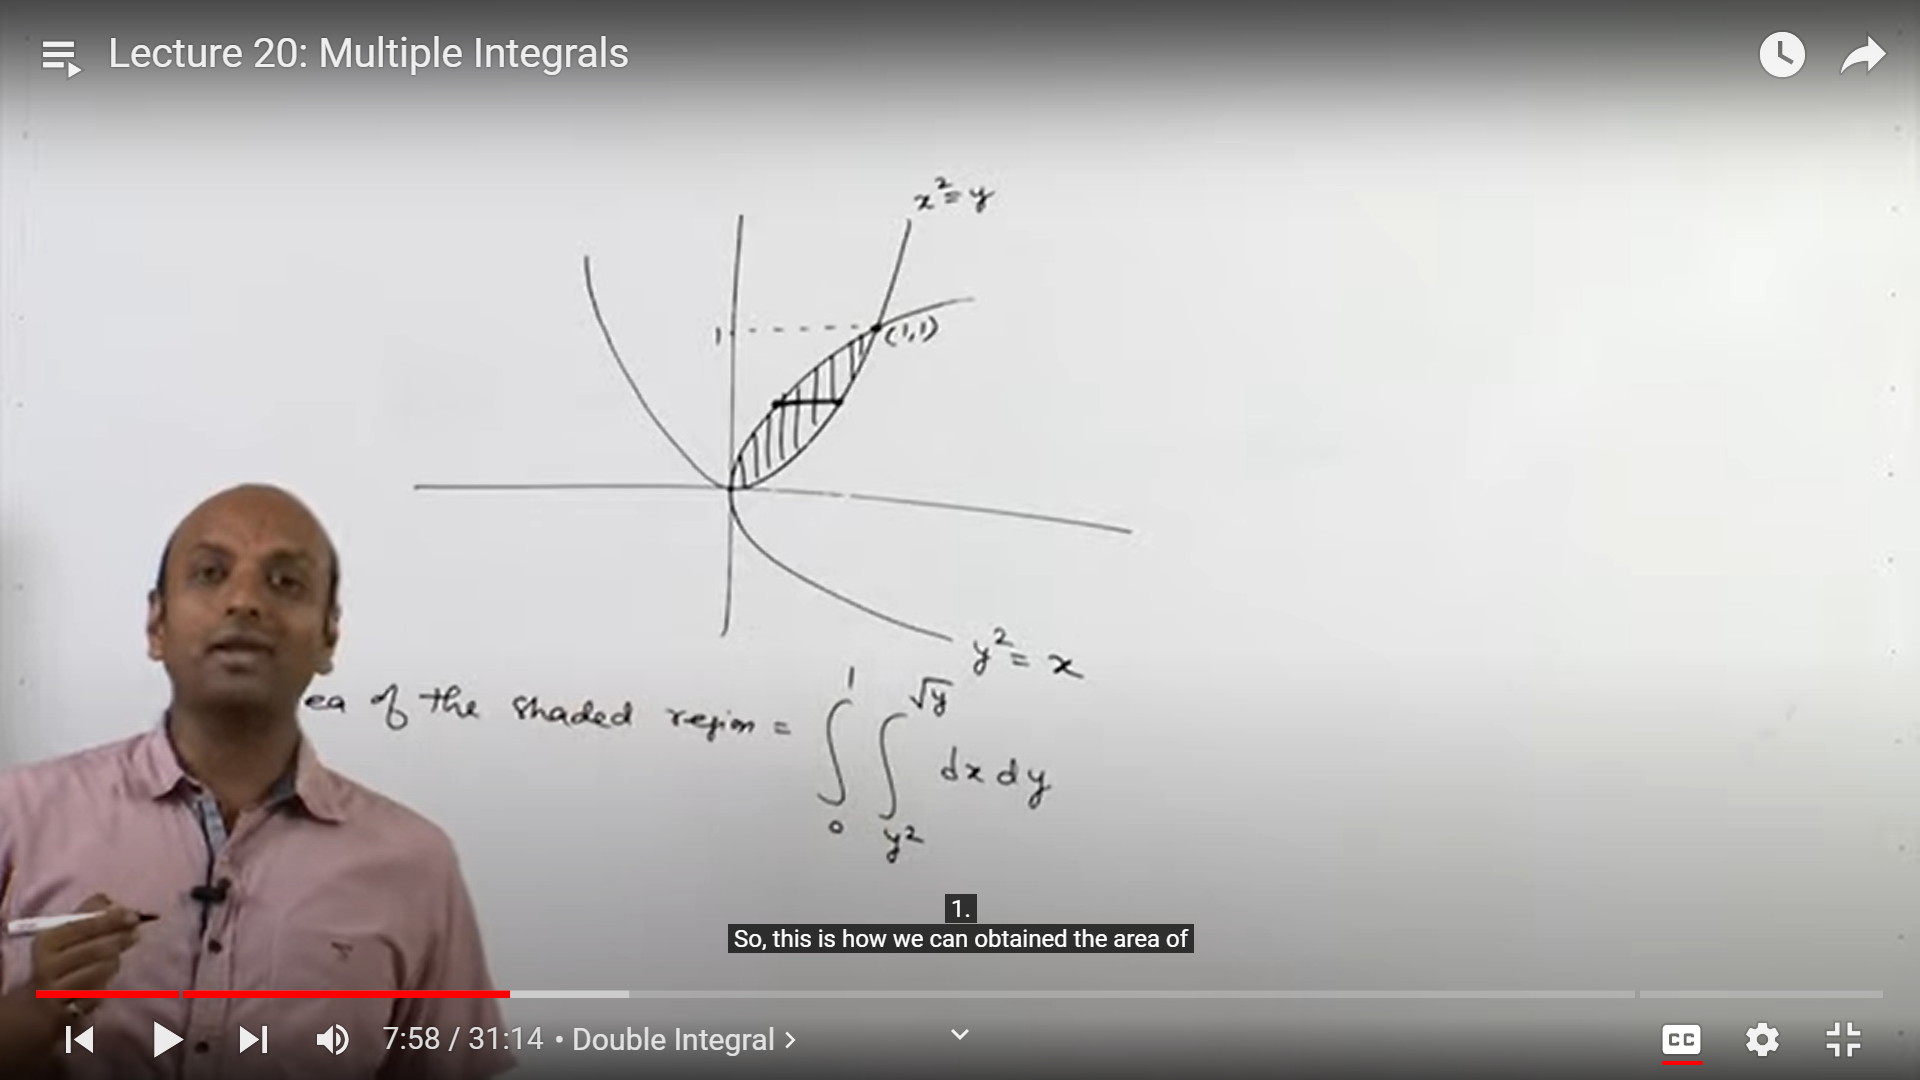 Lecture 20: Multiple Integrals
x² = y
1
(1,1)
y² = x
ea of the shaded region = ∫₀¹ ∫_{y²}^{√y} dx dy
1.
So, this is how we can obtained the area of
7:58 / 31:14 • Double Integral >
CC